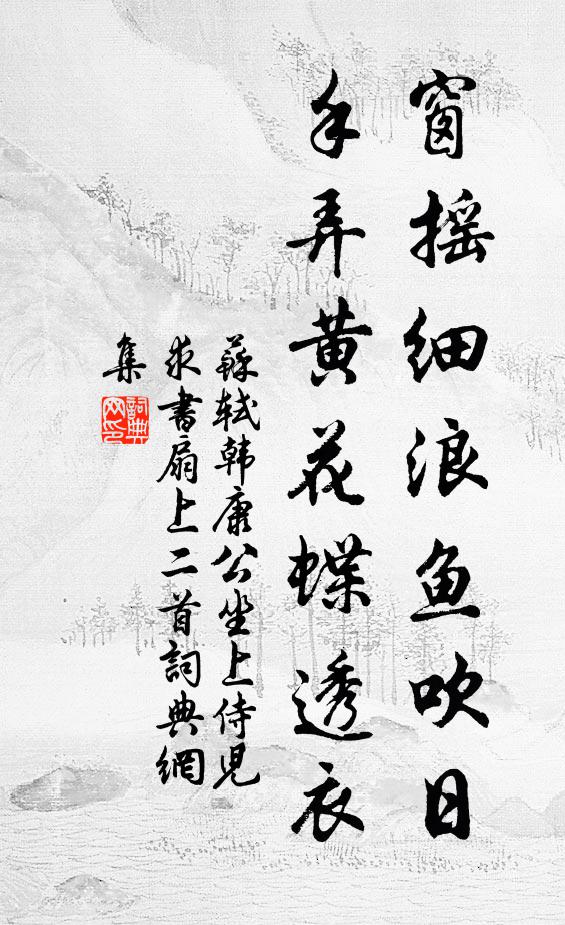 窗摇细浪鱼吹日
手弄黄花蝶透衣
蘇軾韩康公坐上侍児
求書扇上二首詞典網
集
詞典
网印